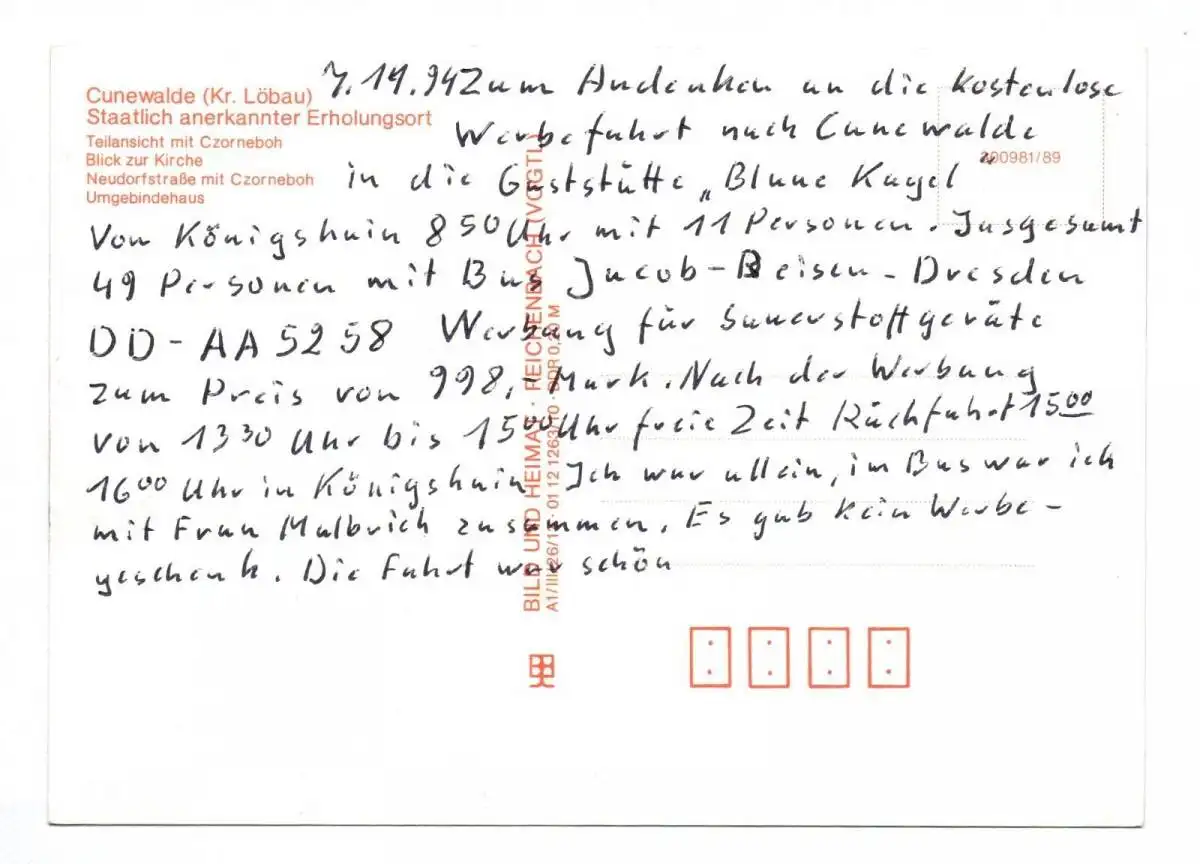 Cunewalde (Kr. Löbau)
Staatlich anerkannter Erholungsort
Teilansicht mit Czorneboh
Blick zur Kirche
Neudorfstraße mit Czorneboh
Umgebindehaus
7.11.94 Zum Andenken an die kostenlose
Werbefahrt nach Cunewalde
in die Gaststätte „Blaue Kugel"
Von Königshain 8 50 Uhr mit 11 Personen. Insgesamt
49 Personen mit Bus Jacob-Reisen-Dresden
DD-AA 5258 Werbung für Sauerstoffgeräte
zum Preis von 998,- Mark. Nach der Werbung
von 13 30 Uhr bis 15 00 Uhr freie Zeit Rückfahrt 15 00
16 00 Uhr in Königshain Ich war allein, im Bus war ich
mit Frau Malbrich zusammen. Es gab kein Werbe-
geschenk. Die Fahrt war schön
200981/89
BILD UND HEIMAT · REICHENBACH (VOGTL)